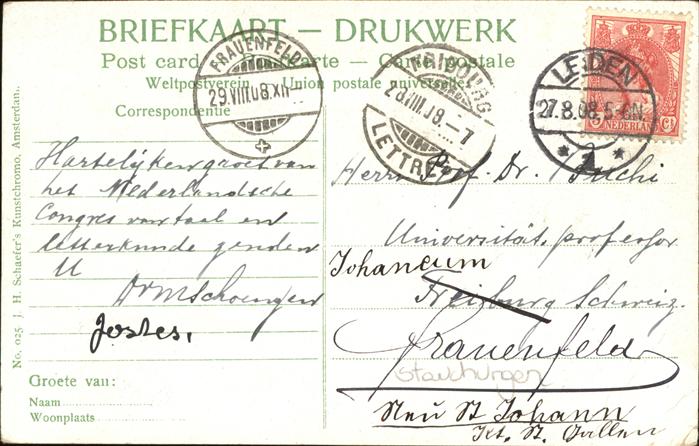 BRIEFKAART — DRUKWERK
Post card — — Carte postale
Weltpostverein — Union postale universelle
Correspondentie
FRAUENFELD
29.VIII.08.XII
FRIBOURG
28.VIII.08.–7
LETTRES
LEIDEN
27.8.08.5-6N.
1
5 Ct
NEDERLAND
Hartelijken groet van
het Nederlandsche
Congres voor taal en
letterkunde zenden
U
Jostes.
Herrn Prof. Dr. Büchi
Universität, professor
Johaneum
Freiburg Schweiz.
Frauenfeld
Neu St Johann
Kt. St. Gallen
Groete van:
Naam
Woonplaats
No. 025 J. H. Schaefer's Kunstchromo, Amsterdam.